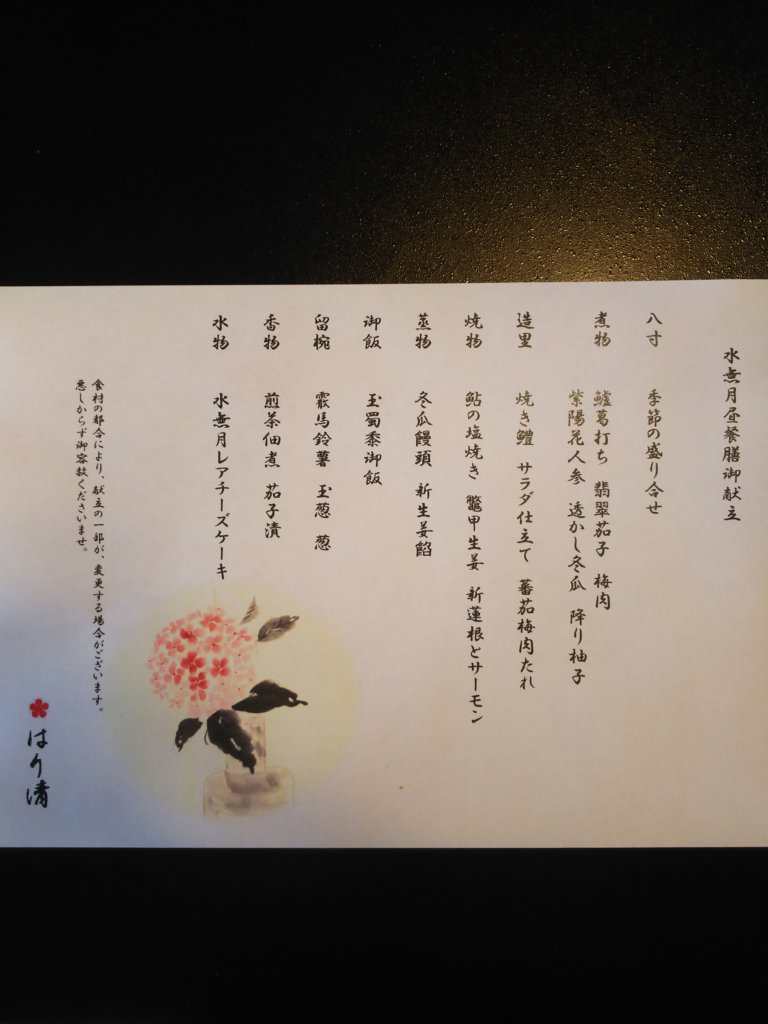 水無月昼餐膳御献立
八寸 季節の盛り合せ
煮物 鱸葛打ち 翡翠茄子 梅肉
紫陽花人参 透かし冬瓜 降り柚子
造里 焼き鱧 サラダ仕立て 蕃茄梅肉たれ
焼物 鮎の塩焼き 鼈甲生姜 新蓮根とサーモン
蒸物 冬瓜饅頭 新生姜餡
御飯 玉蜀黍御飯
留椀 霰馬鈴薯 玉葱 葱
香物 煎茶佃煮 茄子漬
水物 水無月レアチーズケーキ
食材の都合により、献立の一部が、変更する場合がございます。
悪しからず御容赦くださいませ。
はり清